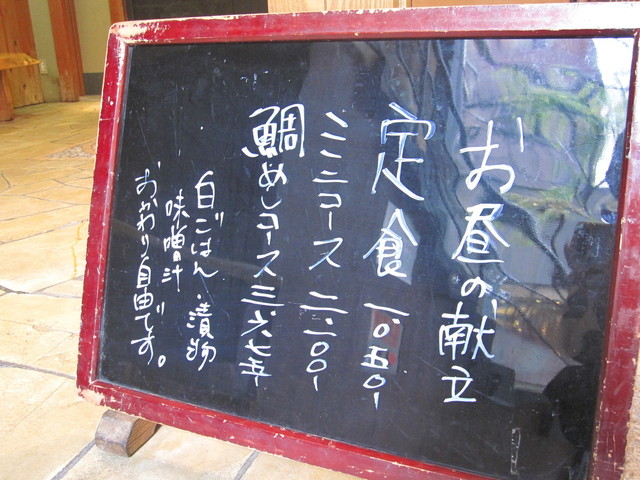 お昼の献立
定食 一〇五〇ー
ミニコース 二一〇〇ー
鯛めしコース 三六七五ー
白ごはん・漬物
味噌汁
おかわり自由です。